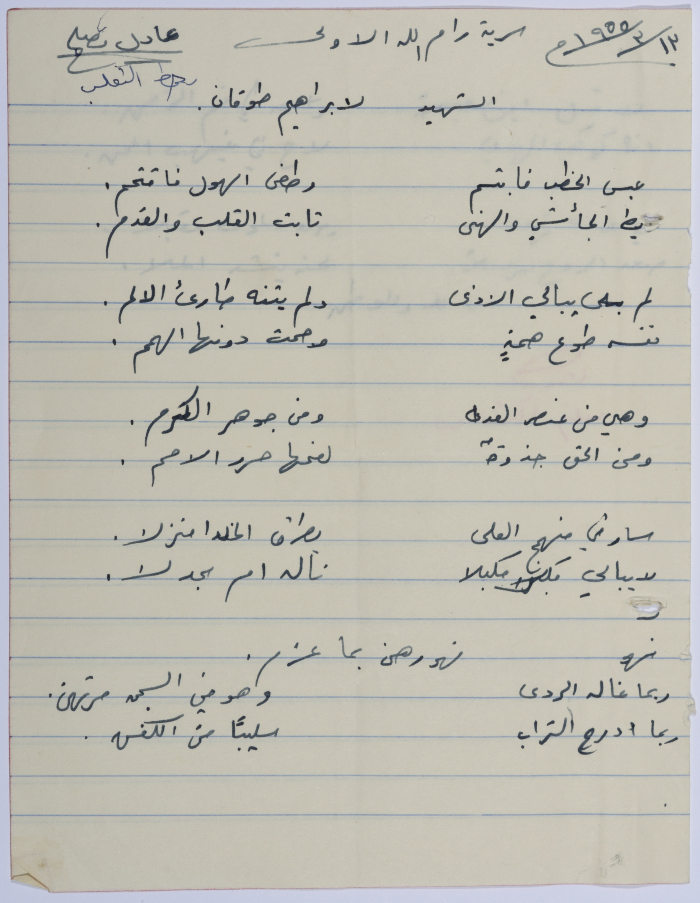 ١٣/٣/١٩٥٥م سرية رام الله الاولى عادل
الشهيد لابراهيم طوقان.
عبس الخطب فابتسم وطغى الهول فاقتحم.
يط الجأش والنهى ثابت القلب والقدم.
لم يبالي الاذى ولم يثنه طارئ الالم.
نفسه طوع همةٍ وجمت دونها الهمم.
وهي من عنصر الفدا ومن جوهر الكرم.
ومن الحق جذوةٌ لفحها حرر الامم.
سار في منهج العلى يطرق الخلدا منزلا.
لا يبالي مكبلا ناله ام مجدلا.
فهو رهن بما عزم.
ربما غاله الردى وهو في السجن مرتهن.
ربما ادرج التراب سليبًا من الكفن.